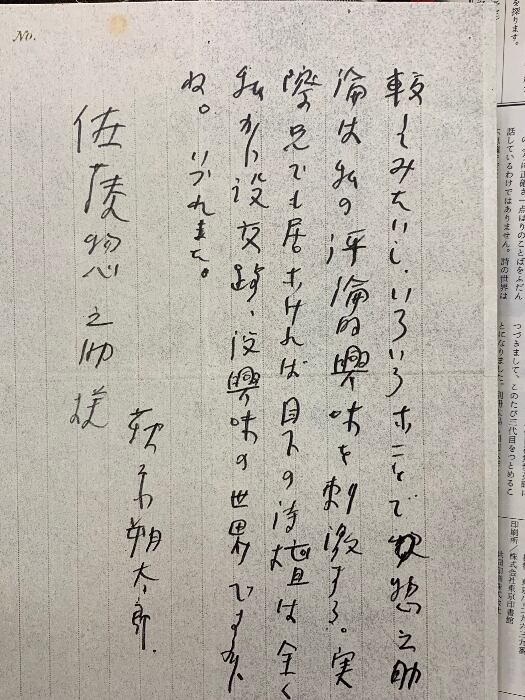 No.
較してみたいし、いろいろなことで惣之助
論は私の評論的興味を刺激する。実
際、兄でも居なければ目下の詩壇は全く
私から没交跡、没興味の世界ですから
ね。いづれまた。
萩原朔太郎.
佐藤惣之助様
を探ります。
正確さ一点ばりのことばをふだん
話しているわけではありません。詩の世界は
つづきまして、このたび二代目をつとめるこ
とになりました。
印刷所/株式会社東京印書館